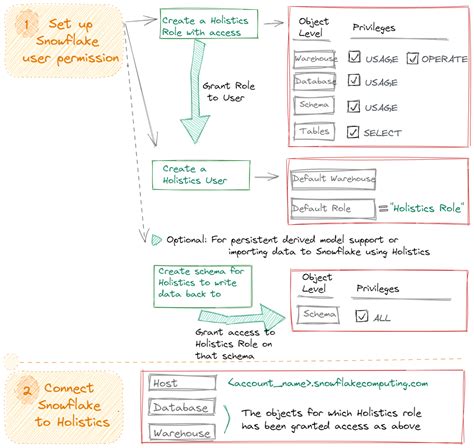 1 Set up
Snowflake
user permission
Create a Holistics
Role with access
Grant Role
to User
Object
Level
Privileges
Warehouse
USAGE
OPERATE
Database
USAGE
Schema
USAGE
Tables
SELECT
Create a
Holistics User
Default Warehouse
Default Role
= "Holistics Role"
Optional: For persistent derived model support or
importing data to Snowflake using Holistics
Create schema for
Holistics to write
data back to
Grant access to
Holistics Role on
that schema
Object
Level
Privileges
Schema
ALL
2 Connect
Snowflake
to Holistics
Host
<account_name>.snowflakecomputing.com
Database
Warehouse
The objects for which Holistics role
has been granted access as above